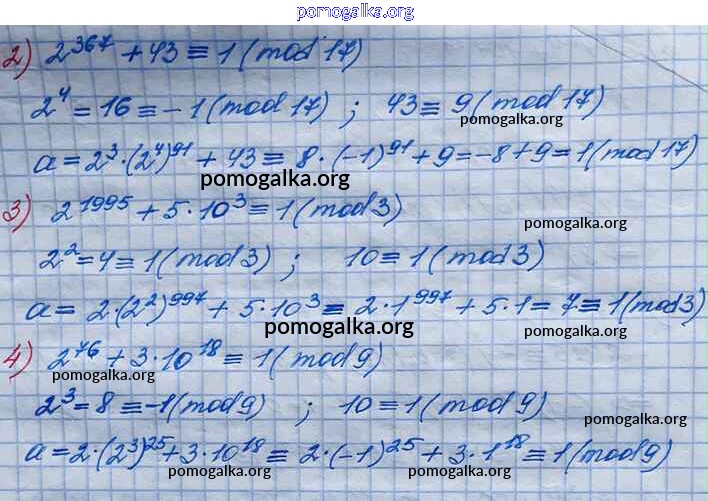 pomogalka.org
2) 2^367 + 43 ≡ 1 (mod 17)
2^4 = 16 ≡ -1 (mod 17) ; 43 ≡ 9 (mod 17)
pomogalka.org
a = 2^3 · (2^4)^91 + 43 ≡ 8 · (-1)^91 + 9 = -8 + 9 = 1 (mod 17)
pomogalka.org
3) 2^1995 + 5 · 10^3 ≡ 1 (mod 3)
pomogalka.org
2^2 = 4 ≡ 1 (mod 3) ; 10 ≡ 1 (mod 3)
a = 2 · (2^2)^997 + 5 · 10^3 ≡ 2 · 1^997 + 5 · 1 = 7 ≡ 1 (mod 3)
pomogalka.org pomogalka.org
4) 2^76 + 3 · 10^18 ≡ 1 (mod 9)
pomogalka.org
2^3 = 8 ≡ -1 (mod 9) ; 10 ≡ 1 (mod 9)
pomogalka.org
a = 2 · (2^3)^25 + 3 · 10^18 ≡ 2 · (-1)^25 + 3 · 1^18 ≡ 1 (mod 9)
pomogalka.org pomogalka.org